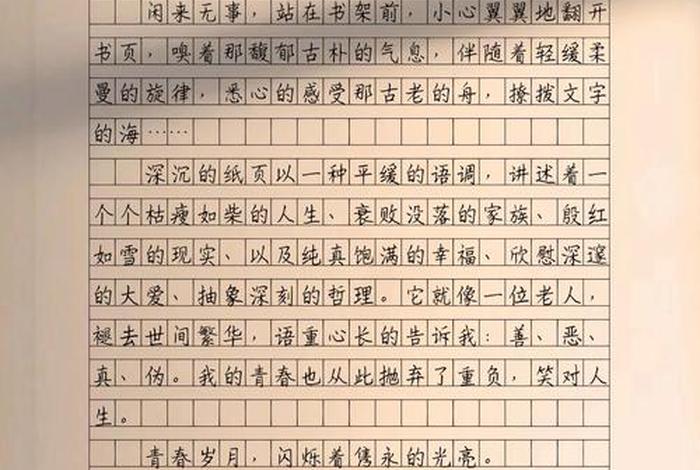 闲来无事，站在书架前，小心翼翼地翻开
书页，嗅着那馥郁古朴的气息，伴随着轻缓柔
曼的旋律，悉心的感受那古老的舟，撩拨文字
的海……
深沉的纸页以一种平缓的语调，讲述着一
个个枯瘦如柴的人生、衰败没落的家族、殷红
如雪的现实、以及纯真饱满的幸福、欣慰深邃
的大爱、抽象深刻的哲理。它就像一位老人，
褪去世间繁华，语重心长的告诉我：善、恶、
真、伪。我的青春也从此抛弃了重负，笑对人
生。
青春岁月，闪烁着隽永的光亮。